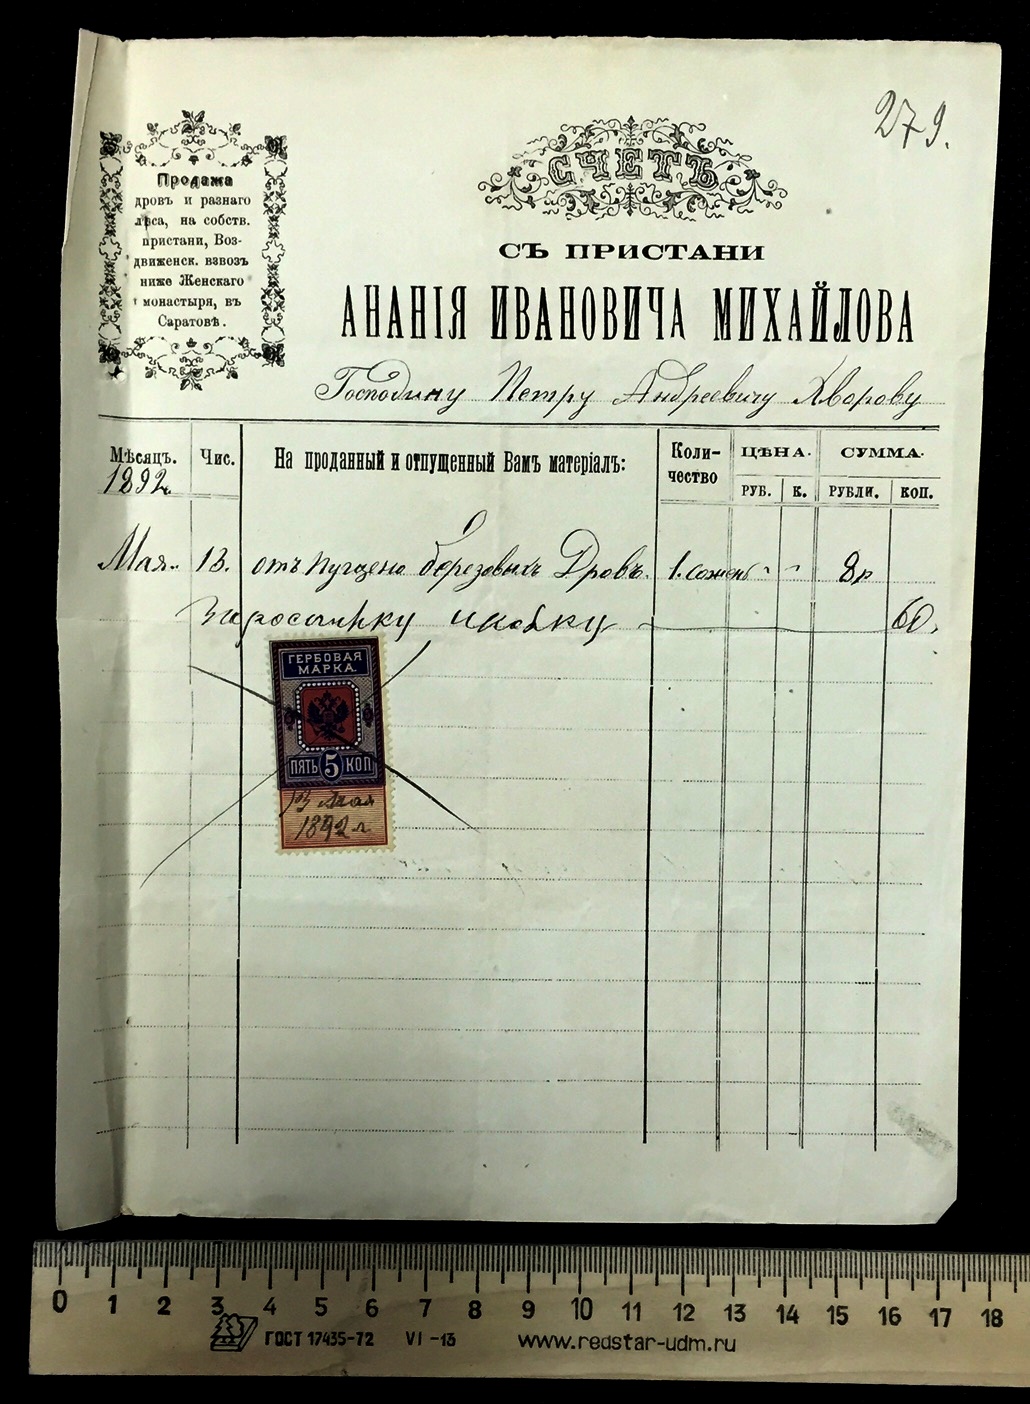 279.
Продажа
дровъ и разнаго
лѣса, на собств.
пристани, Воз-
движенск. взвозъ
ниже Женскаго
монастыря, въ
Саратовѣ.
СЧЕТЪ
СЪ ПРИСТАНИ
АНАНІЯ ИВАНОВИЧА МИХАЙЛОВА
Господину Петру Андреевичу
Мѣсяцъ. Чис. На проданный и отпущенный Вамъ матеріалъ: Коли-чество ЦѢНА. СУММА.
1892
РУБ. К. РУБЛИ. КОП.
Мая 13. отъпущено березовыхъ Дровъ. 1. сажень " " 8р
За 60.
ГЕРБОВАЯ
МАРКА.
ПЯТЬ 5 КОП
13 Мая
1892 г
0 1 2 3 4 5 6 7 8 9 10 11 12 13 14 15 16 17 18
ГОСТ 17435-72 VI-13 www.redstar-udm.ru